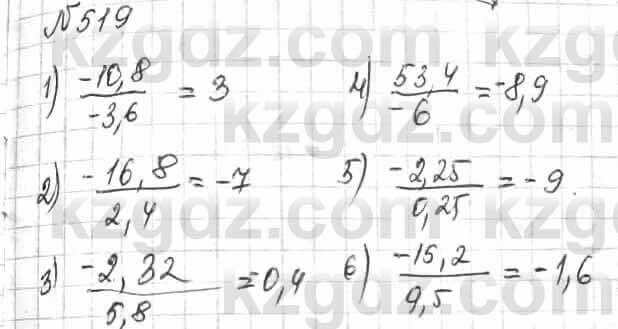 №519
1) -10,8 / -3,6 = 3
2) -16,8 / 2,4 = -7
3) -2,32 / 5,8 = 0,4
4) 53,4 / -6 = -8,9
5) -2,25 / 0,25 = -9
6) -15,2 / 9,5 = -1,6
kzgdz.com